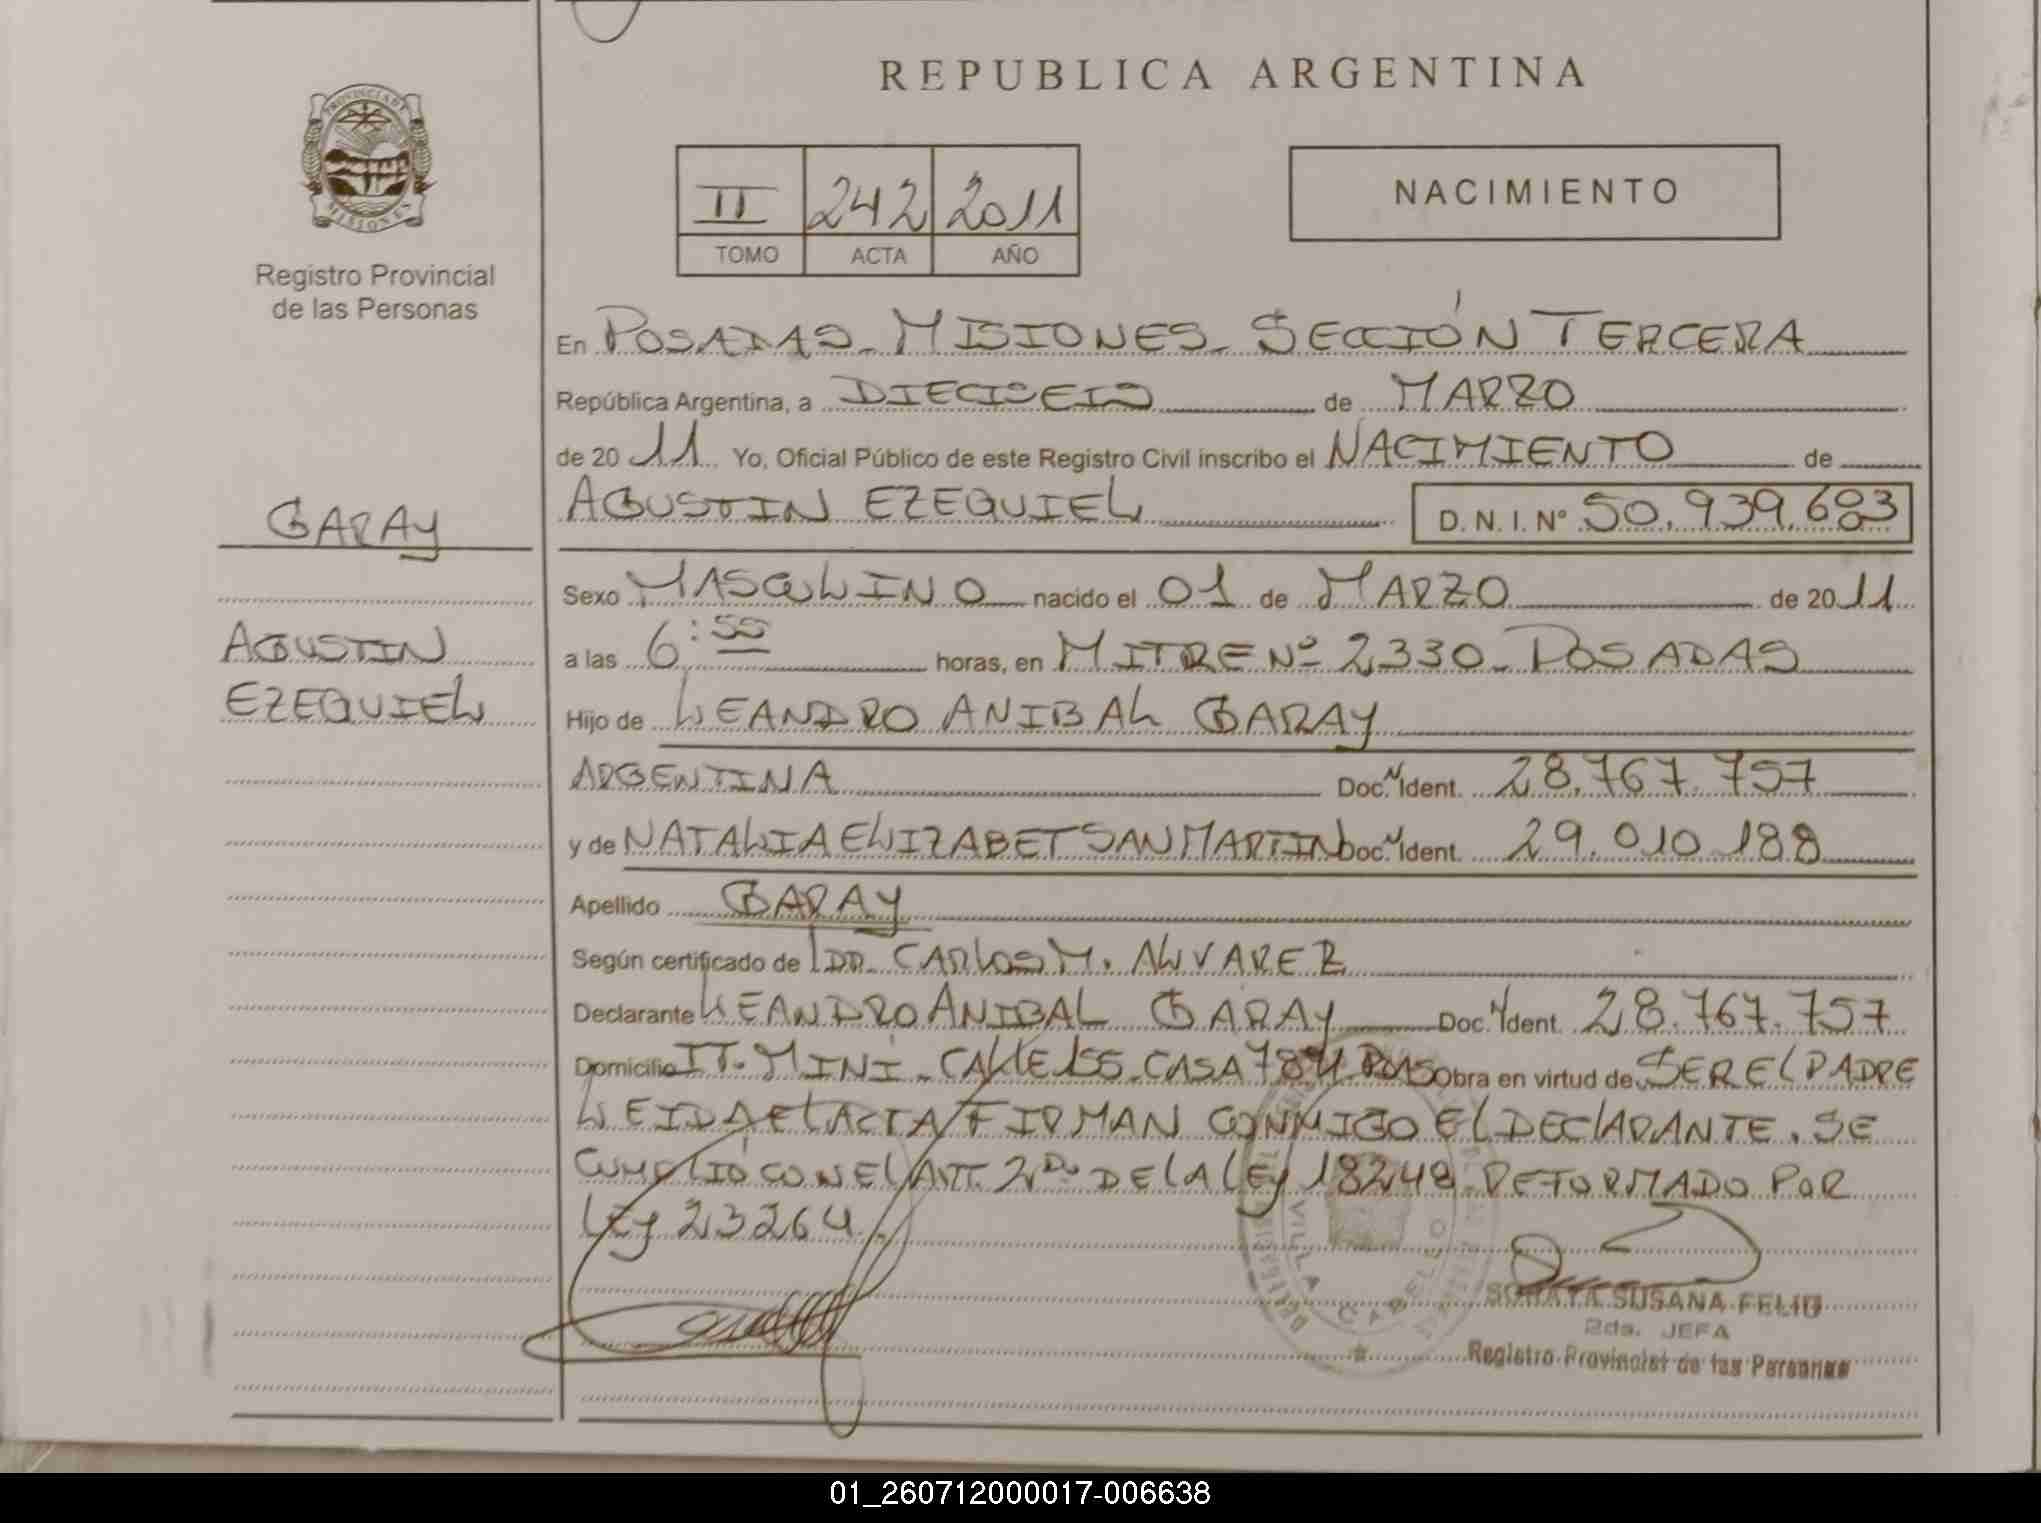 PROVINCIA DE
MISIONES
Registro Provincial
de las Personas
GARAY
AGUSTIN
EZEQUIEL
REPUBLICA ARGENTINA
II 242 2011
TOMO ACTA AÑO
NACIMIENTO
En POSADAS - MISIONES - SECCIÓN TERCERA
República Argentina, a DIECISEIS de MARZO
de 20 11 Yo, Oficial Público de este Registro Civil inscribo el NACIMIENTO de
AGUSTIN EZEQUIEL D. N. I. Nº 50.939.603
Sexo MASCULINO nacido el 01 de MARZO de 20 11
a las 6:55 horas, en MITRE Nº 2330 - POSADAS
Hijo de LEANDRO ANIBAL GARAY
ARGENTINA Doc. N Ident. 28.767.757
y de NATALIA ELIZABET SAN MARTIN Doc. N Ident. 29.010.188
Apellido GARAY
Según certificado de DR. CARLOS M. ALVAREZ
Declarante LEANDRO ANIBAL GARAY Doc. N Ident. 28.767.757
Domicilio IT. MINÍ - CALLE 155 - CASA 784 PDAS Obra en virtud de SER EL PADRE
LEIDA EL ACTA FIRMAN CONMIGO EL DECLARANTE. SE
CUMPLIÓ CON EL ART. 2do DE LA LEY 18248 REFORMADO POR
LEY 23264.
VILLA CABELLO
SORAYA SUSANA FELIU
2da. JEFA
Registro Provincial de las Personas
01_260712000017-006638